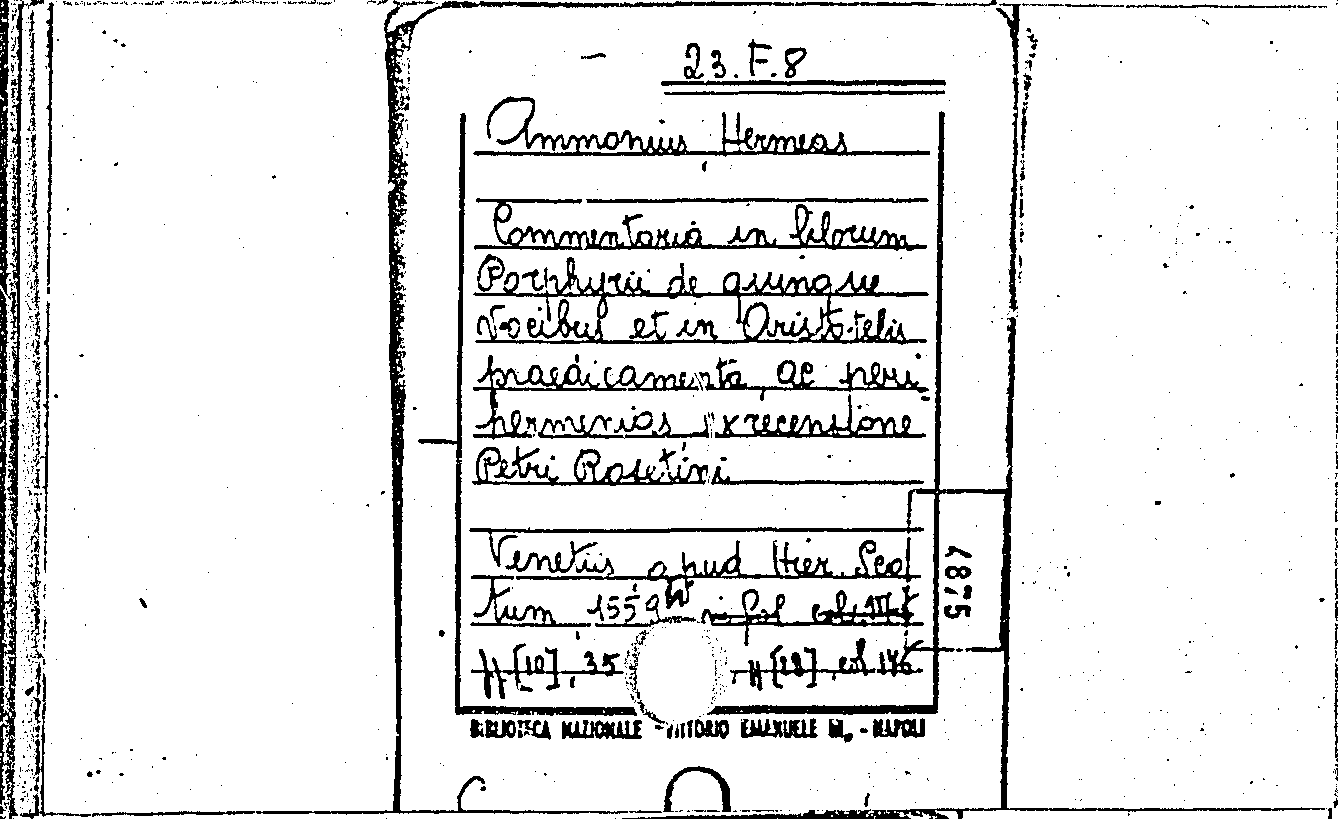 23.F.8
Ammonius Hermeas
Commentaria in librum
Porphyrii de quinque
vocibus et in Aristotelis
praedicamenta ac peri
hermenias ex recensione
Petri Rosetini
Venetiis apud Hier. Sco
tum 1559 in fol
[10], 35 [28], col 176
4875
BIBLIOTECA NAZIONALE - VITTORIO EMANUELE III. - NAPOLI